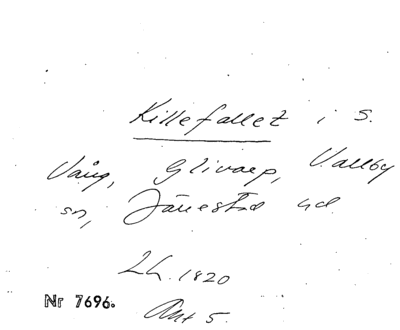 Killefallet i S.
Vång, Glivarp, Vallby
sn, Järrestad hd.
LL. 1820
Nr 7696.
Ant 5.